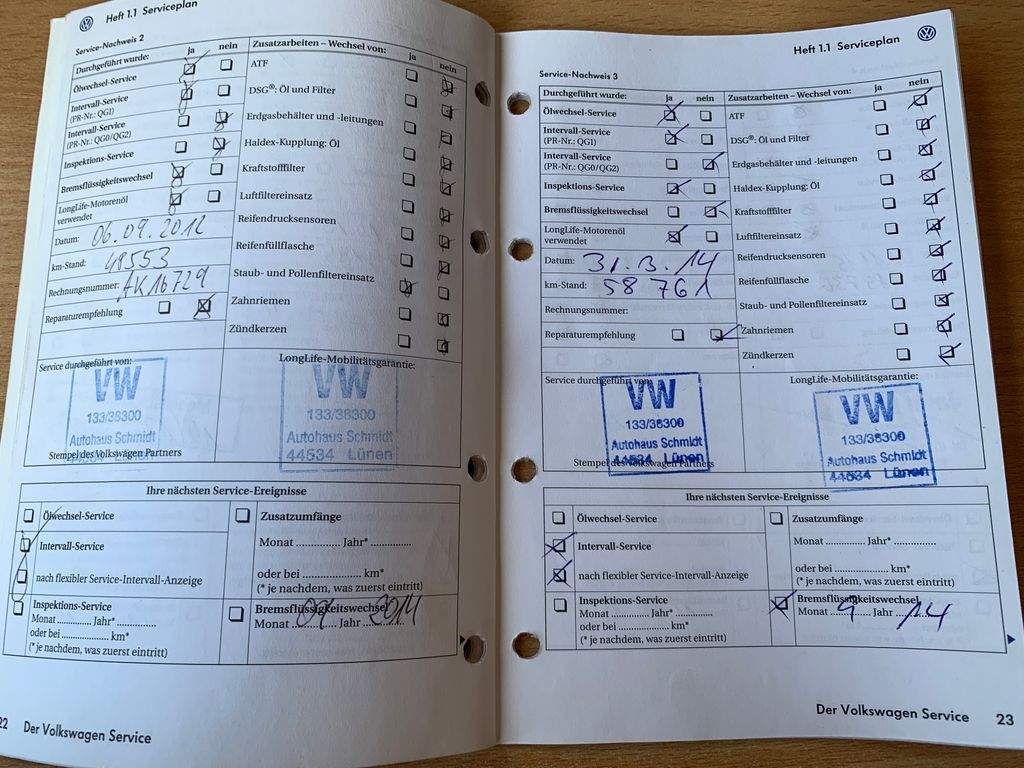 Heft 1.1 Serviceplan
Service-Nachweis 2
Durchgeführt wurde: ja nein
Ölwechsel-Service
Intervall-Service
(PR-Nr.: QG1)
Intervall-Service
(PR-Nr.: QG0/QG2)
Inspektions-Service
Bremsflüssigkeitswechsel
LongLife-Motorenöl
verwendet
Datum: 06.09.2012
km-Stand: 48553
Rechnungsnummer: AK16729
Reparaturempfehlung
Zusatzarbeiten – Wechsel von: ja nein
ATF
DSG®: Öl und Filter
Erdgasbehälter und -leitungen
Haldex-Kupplung: Öl
Kraftstofffilter
Luftfiltereinsatz
Reifendrucksensoren
Reifenfüllflasche
Staub- und Pollenfiltereinsatz
Zahnriemen
Zündkerzen
Service durchgeführt von:
VW
133/36300
Autohaus Schmidt
44534 Lünen
Stempel des Volkswagen Partners
LongLife-Mobilitätsgarantie:
VW
133/36300
Autohaus Schmidt
44534 Lünen
Ihre nächsten Service-Ereignisse
Ölwechsel-Service
Intervall-Service
nach flexibler Service-Intervall-Anzeige
Zusatzumfänge
Monat ............... Jahr* ..............
oder bei ..................... km*
(* je nachdem, was zuerst eintritt)
Inspektions-Service
Monat ............ Jahr* ..............
oder bei ................. km*
(* je nachdem, was zuerst eintritt)
Bremsflüssigkeitswechsel
Monat 09 Jahr 2014
22 Der Volkswagen Service
Heft 1.1 Serviceplan
Service-Nachweis 3
Durchgeführt wurde: ja nein
Ölwechsel-Service
Intervall-Service
(PR-Nr.: QG1)
Intervall-Service
(PR-Nr.: QG0/QG2)
Inspektions-Service
Bremsflüssigkeitswechsel
LongLife-Motorenöl
verwendet
Datum: 31.3.14
km-Stand: 58 761
Rechnungsnummer:
Reparaturempfehlung
Zusatzarbeiten – Wechsel von: ja nein
ATF
DSG®: Öl und Filter
Erdgasbehälter und -leitungen
Haldex-Kupplung: Öl
Kraftstofffilter
Luftfiltereinsatz
Reifendrucksensoren
Reifenfüllflasche
Staub- und Pollenfiltereinsatz
Zahnriemen
Zündkerzen
Service durchgeführt von:
VW
133/36300
Autohaus Schmidt
44534 Lünen
Stempel des Volkswagen Partners
LongLife-Mobilitätsgarantie:
VW
133/36300
Autohaus Schmidt
44534 Lünen
Ihre nächsten Service-Ereignisse
Ölwechsel-Service
Intervall-Service
nach flexibler Service-Intervall-Anzeige
Zusatzumfänge
Monat ............... Jahr* ..............
oder bei ..................... km*
(* je nachdem, was zuerst eintritt)
Inspektions-Service
Monat ............ Jahr* ..............
oder bei ................. km*
(* je nachdem, was zuerst eintritt)
Bremsflüssigkeitswechsel
Monat 9 Jahr 14
Der Volkswagen Service 23